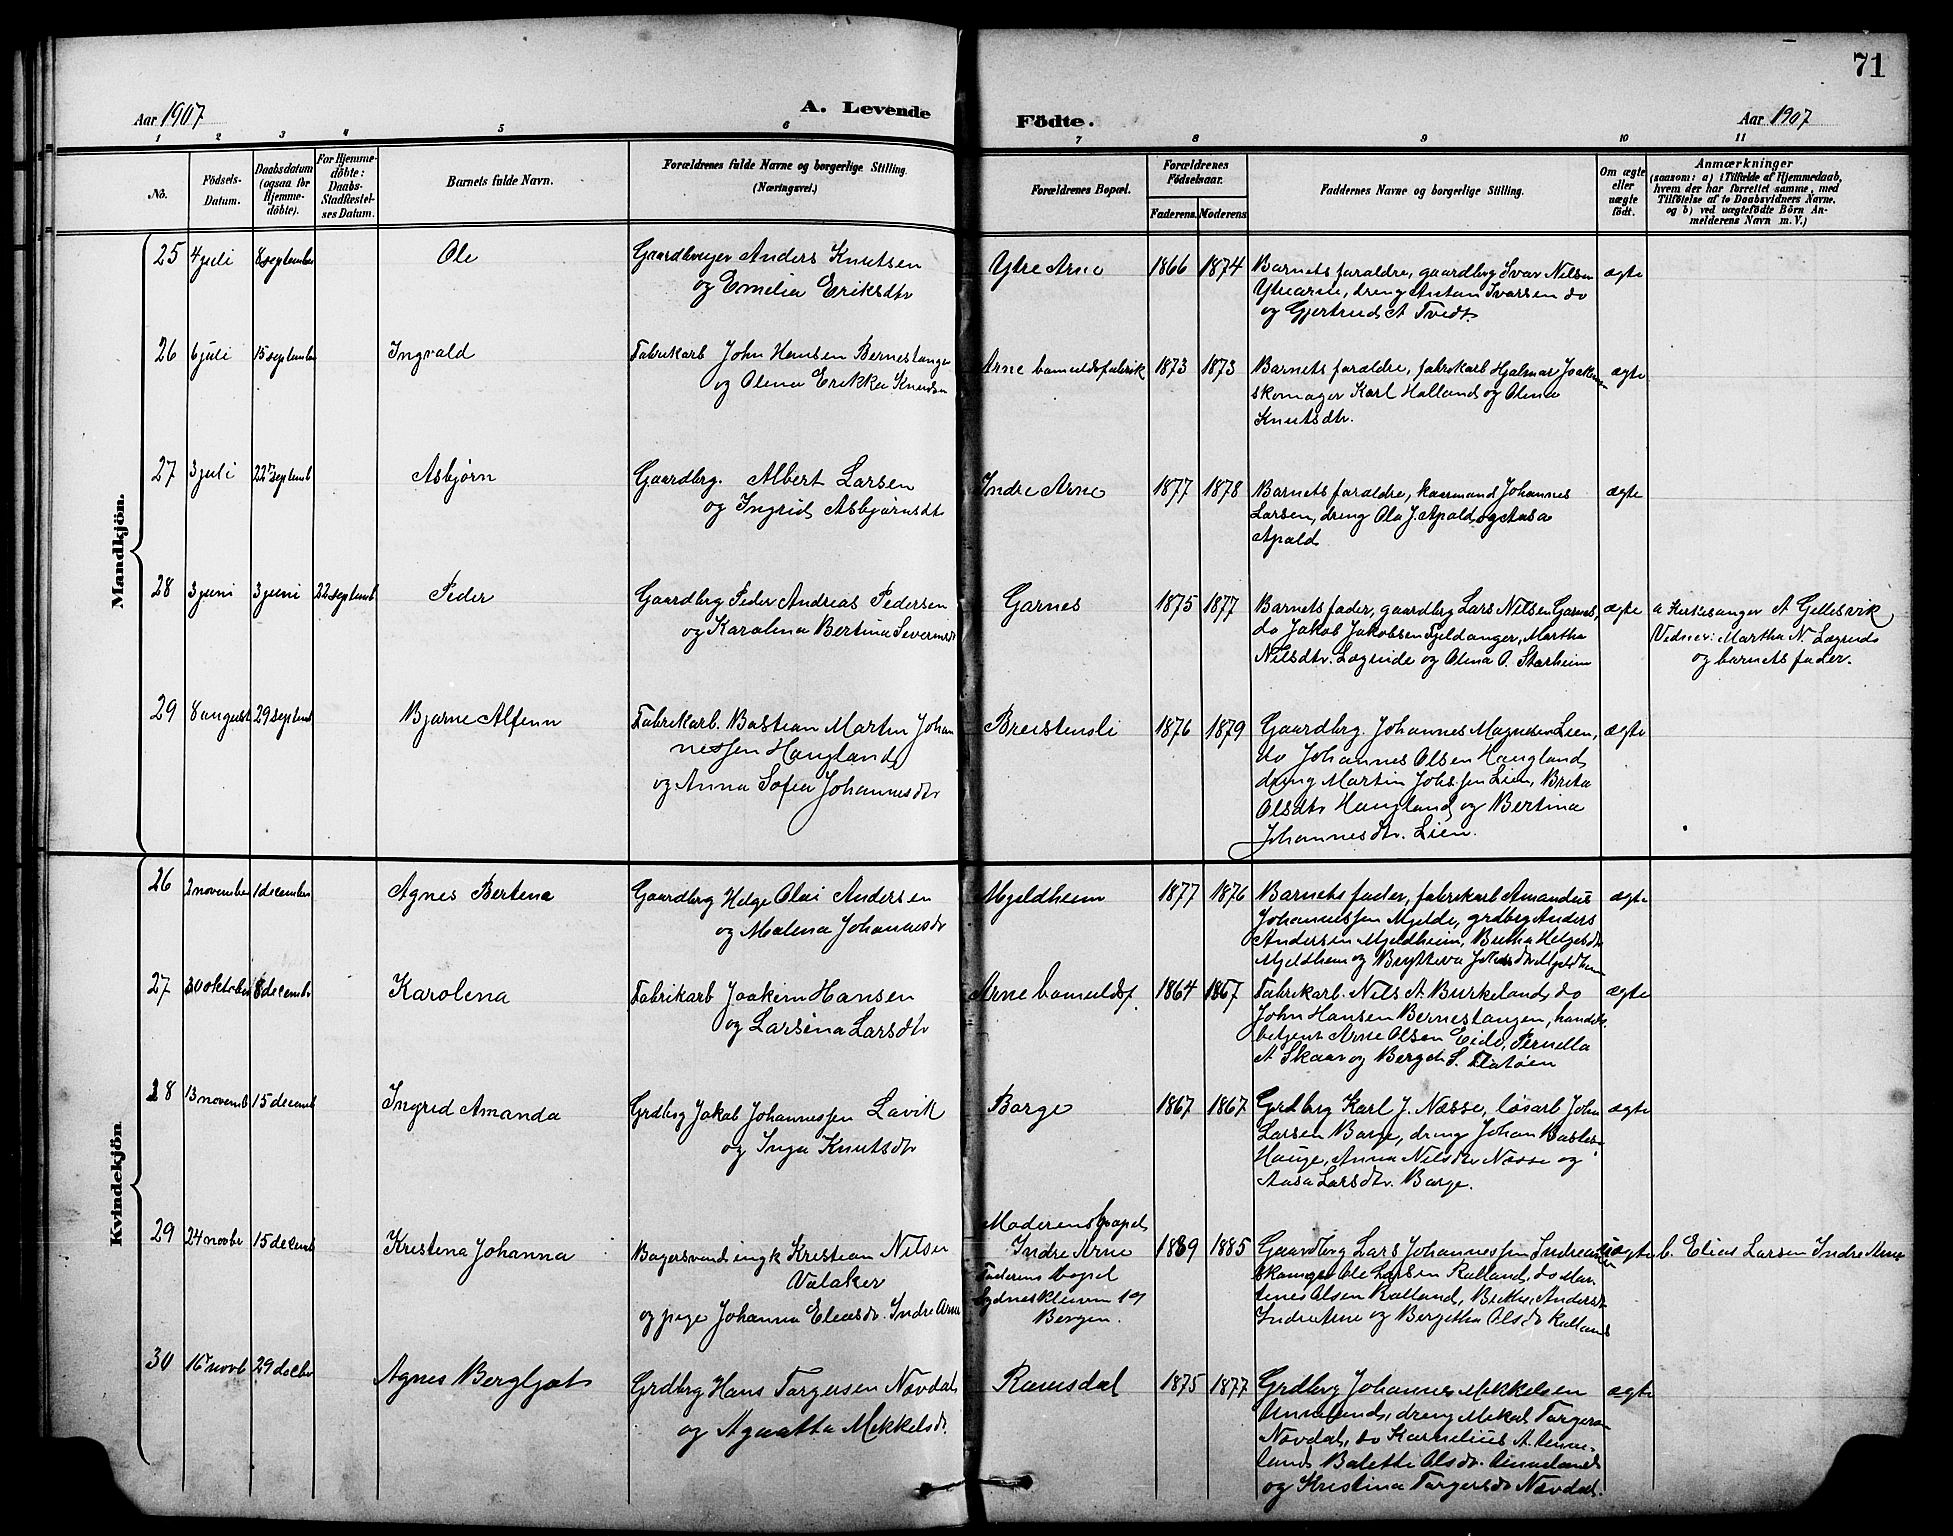 71
Aar 1907
A. Levende
Födte.
Aar 1907
1 2 3 4 5 6 7 8 9 10 11
No.
Födsels-
Datum.
Daabsdatum
(ogsaa for
Hjemme-
döbte).
For Hjemme-
döbte:
Daabs-
Stadfæstel-
ses Datum.
Barnets fulde Navn.
Forældrenes fulde Navne og borgerlige Stilling.
(Næringsvei.)
Forældrenes Bopæl.
Forældrenes
Födselsaar.
Faderens. Moderens.
Faddernes Navne og borgerlige Stilling.
Om ægte
eller
uægte
födt.
Anmærkninger
(saasom: a) i Tilfælde af Hjemmedaab,
hvem der har forrettet samme, med
Tilföielse af to Daabsvidners Navne,
og b) ved uægtefödte Börn An-
melderens Navn m. V.)
Mandkjön.
25 4 juli 8 september Ole
Gaardbruger Anders Knutsen
og Emilia Eriksdtr
Ytre Arne 1866 1874
Barnets foraldre, gaardbrg Ivar Nilsen
Ytrearne, dreng Anton Ivarsen do
og Gjertrud A Tvedt.
ægte
26 6 juli 15 september Ingvald
Fabrikarb John Hansen Bernestangen
og Olina Erikka Knudsen
Arne bomuldsfabrik 1873 1873
Barnets foraldre, fabrikarb Hjalmar Joakimsen
skomager Karl Halland og Olina
Knutsdtr.
ægte
27 3 juli 22 septemb Asbjørn
Gaardbrg. Albert Larsen
og Ingrid Asbjørnsdtr
Indre Arne 1877 1878
Barnets foraldre, kaarmand Johannes
Larsen, dreng Ola J. Apald og Aasa
Apald
ægte
28 3 juni 3 juni 22 septemb Peder
Gaardbrg Peder Andreas Pedersen
og Karolina Bertina Severinsdtr
Garnes 1875 1877
Barnets fader, gaardbrg Lars Nilsen Garnes,
do Jakob Jakobsen Fjeldanger, Martha
Nilsdtr. Lægreide og Olina O. Starheim
ægte
a Kirkesanger A Gellesvik
Vidner: Martha N. Lægreid
og barnets fader.
29 8 august 29 septemb Bjarne Alfenn
Fabrikarb. Bastian Martin Johan
nessen Haugland
og Anna Sofia Johannesdtr
Breistensli 1876 1879
Gaardbrg. Johannes Magnesen Lien,
do Johannes Olsen Haugland,
dreng Martin Johssen Lien, Brita
Olsdtr Haugland og Bertina
Johannesdtr. Lien.
ægte
Kvindekjön.
26 2 november 1 december Agnes Bertina
Gaardbrg Helge Olai Andersen
og Malina Johannesdtr
Mjeldheim 1877 1876
Barnets fader, fabrikarb Amandus
Johannessen Mjelde, grdbrg Anders
Andersen Mjeldheim, Birtha Helgesdtr
Mjeldheim og Bryteva Mjeldheim
ægte
27 30 oktober 8 decembr Karolina
Fabrikarb Joakim Hansen
og Larsina Larsdtr
Arne bomuldsf. 1864 1867
Fabrikarb. Nils A. Birkeland, do
John Hansen Bernestangen, handels
betjent Arne Olsen Eide, Pernella
A Skaar og Berget S. Flatøen
ægte
28 13 novemb 15 decemb Ingrid Amanda
Grdbrg Jakob Johannessen Lavik
og Inga Knutsdtr
Borge 1867 1867
Grdbrg Karl J. Næsse, løsarb John
Larsen Borge, dreng Johan
Hauge, Anna Nilsdtr Næsse og
Aasa Larsdtr. Borge.
ægte
29 24 novbr 15 decemb Kristina Johanna
Bagersvend ingk Kristian Nilsen
Valaker
og pige Johanna Eliasdtr. Indre Arne
Moderens bopæl
Indre Arne
Faderens bopæl
Sydneskleiven 19
Bergen.
1889 1885
Gaardbrg Lars Johannessen Indrearne
skomager Ole Larsen Kalland, do Mar
tines Olsen Kalland, Birthe Andersdtr
Indre Arne og Bergitha Olsdtr Kalland
uægte
b. Elias Larsen Indre Arne
30 16 novb 29 decbr Agnes Bergljot
Grdbrg Hans Torgersen Novdal
og Agnatha Mikkelsdtr.
Ramsdal 1875 1877
Grdbrg Johannes Mikkelsen
Unneland, dreng Mikal Torgersen
Novdal, do Kornelius A. Unne-
land Balette Olsdtr. Unneland
og Kristina Torgersdtr Novdal.
ægte